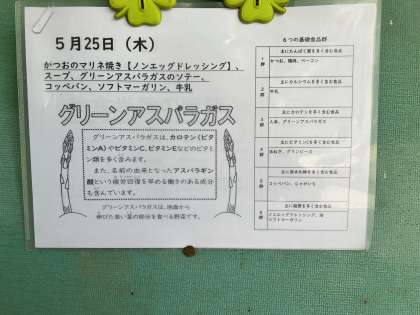 5月25日（木）
かつおのマリネ焼き【ノンエッグドレッシング】、
スープ、グリーンアスパラガスのソテー、
コッペパン、ソフトマーガリン、牛乳
グリーンアスパラガス
グリーンアスパラガスは、カロテン（ビタ
ミンA）やビタミンC、ビタミンEなどのビタミ
ン類を多く含みます。
また、名前の由来となったアスパラギン
酸という疲労回復を早める働きのある成分
も含んでいます。
グリーンアスパラガスは、地面から
伸びた若い茎の部分を食べる野菜です。
６つの基礎食品群
1群
主にたんぱく質を多く含む食品
かつお、鶏肉、ベーコン
2群
主にカルシウムを多く含む食品
牛乳
3群
主にカロテンを多く含む食品
人参、グリーンアスパラガス
4群
主にビタミンCを多く含む食品
玉ねぎ、グリンピース
5群
主に炭水化物を多く含む食品
コッペパン、じゃがいも
6群
主に脂質を多く含む食品
ノンエッグドレッシング、油
ソフトマーガリン